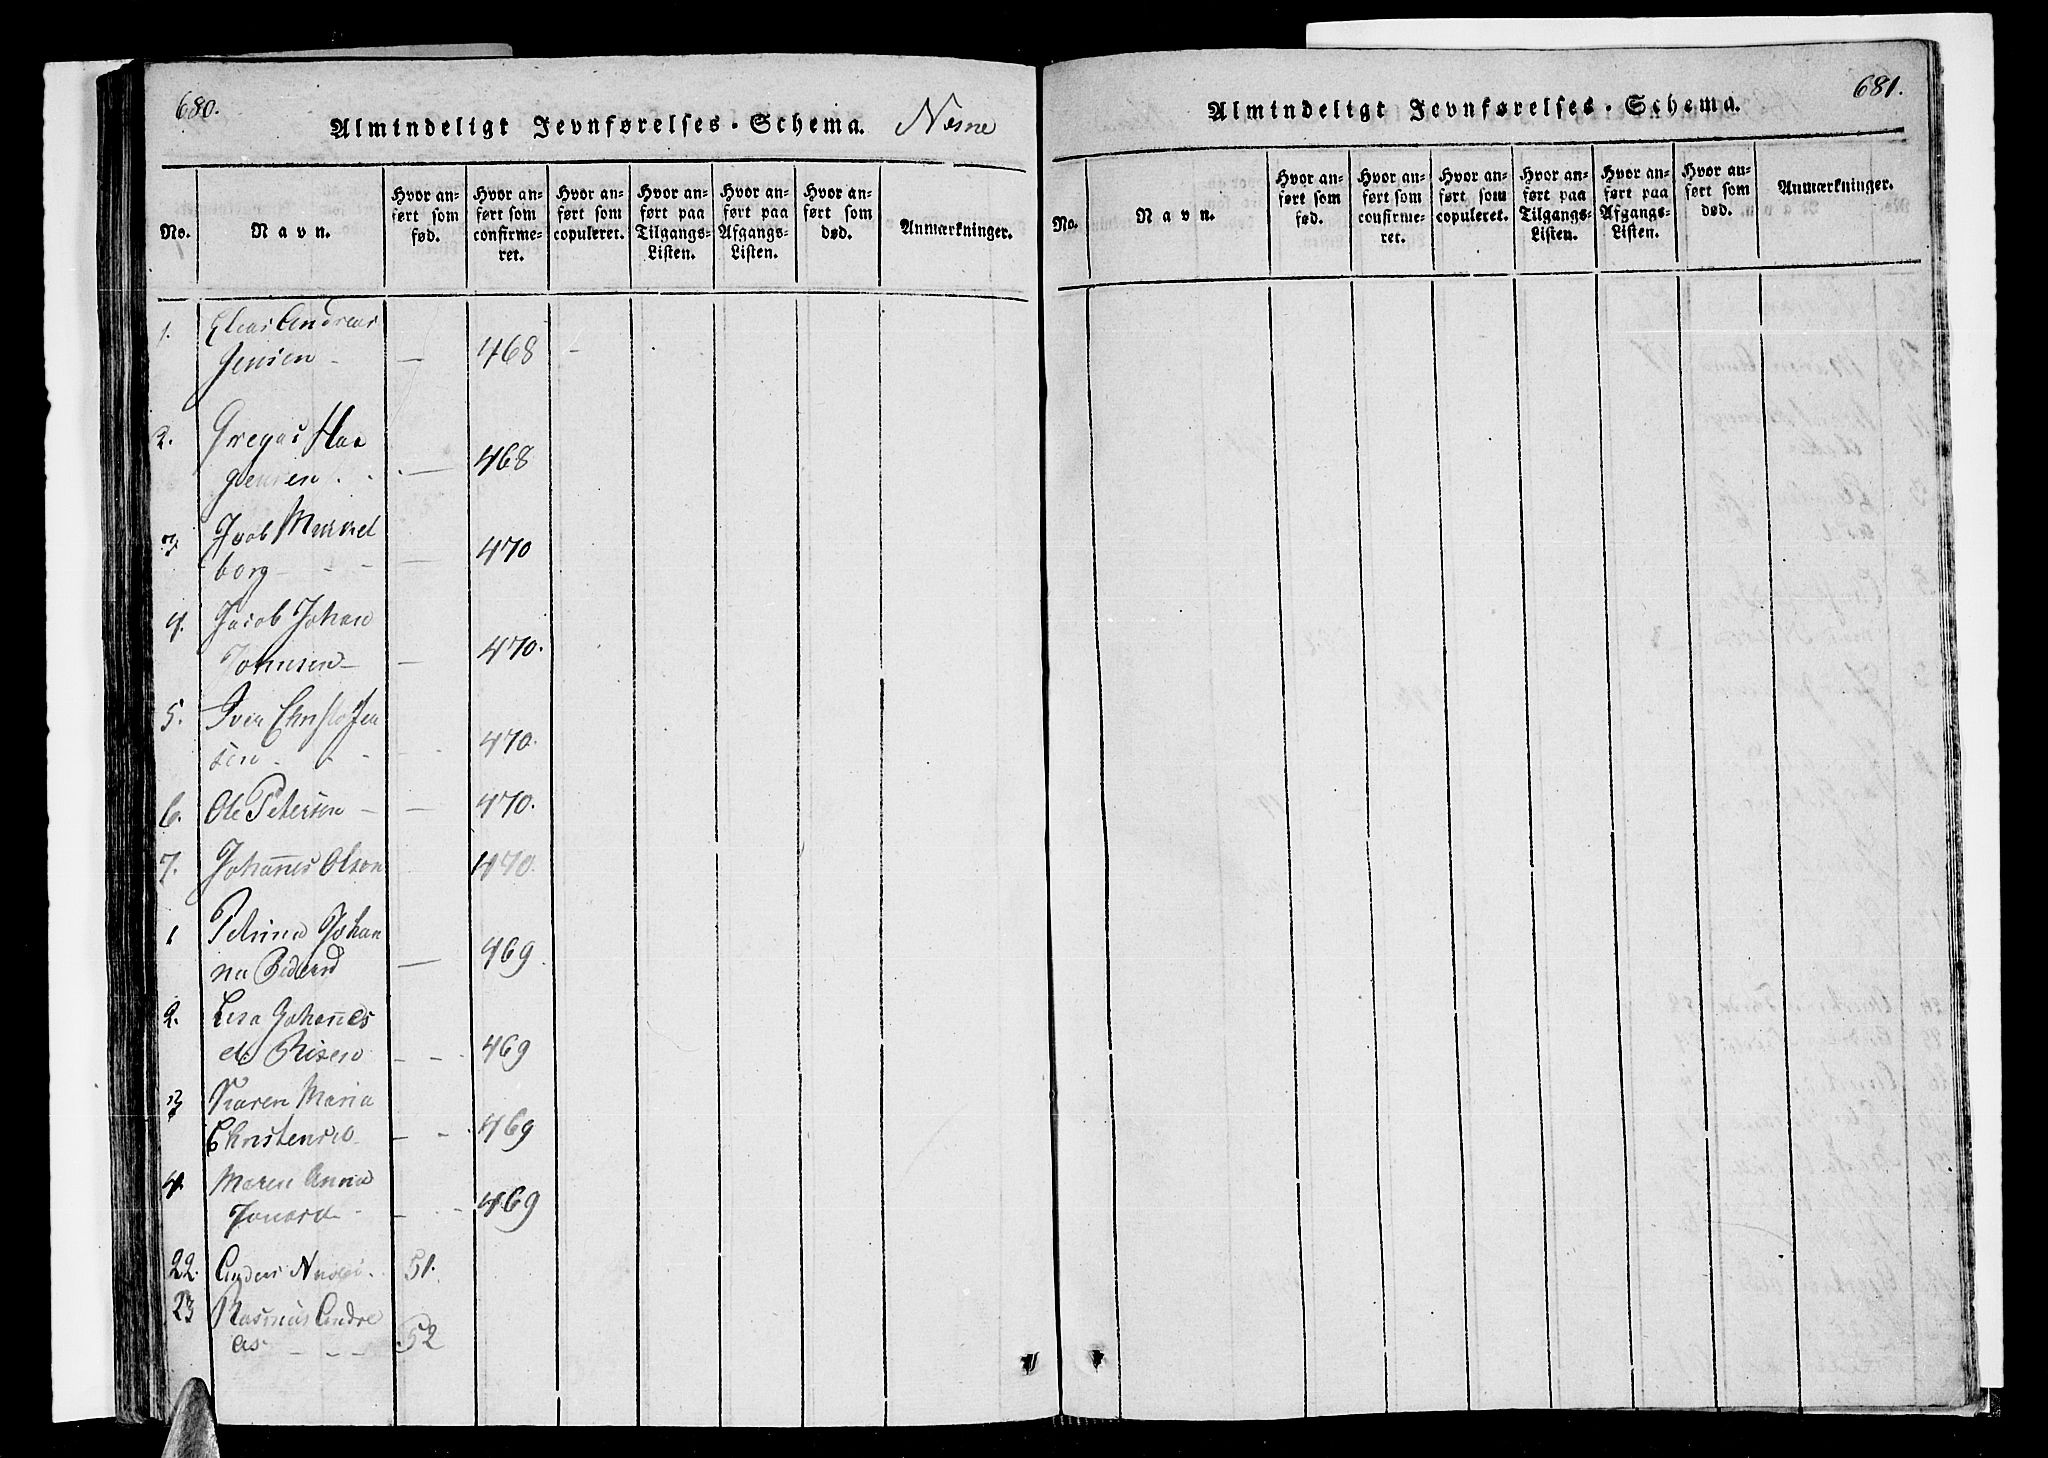 680.
Almindeligt Jevnførelses-Schema.
No.
Navn.
Hvor anført som fød.
Hvor anført som confirmeret.
Hvor anført som copuleret.
Hvor anført paa Tilgangs-Listen.
Hvor anført paa Afgangs-Listen.
Hvor anført som død.
Anmærkninger.
1. Elias Andreas
Jensen - — 468 -
2. Gregas Haa
gensen . — 468
3. borg - - - — 470
4. Jacob Johan
— 470.
5. Iver Christofen
sen - - - 470.
6. Ole Petersen - — 470.
7. Johannes Olson 470.
1 Johan
na — 469.
2. Johannes
- - 469
3 Karen Maria
Christensd - - 469
4. Maren Anna
- - 469
22. Anders 51.
23 Rasmus Andre
as - - - 52
681.
Almindeligt Jevnførelses-Schema.
No.
Navn.
Hvor anført som fød.
Hvor anført som confirmeret.
Hvor anført som copuleret.
Hvor anført paa Tilgangs-Listen.
Hvor anført paa Afgangs-Listen.
Hvor anført som død.
Anmærkninger.